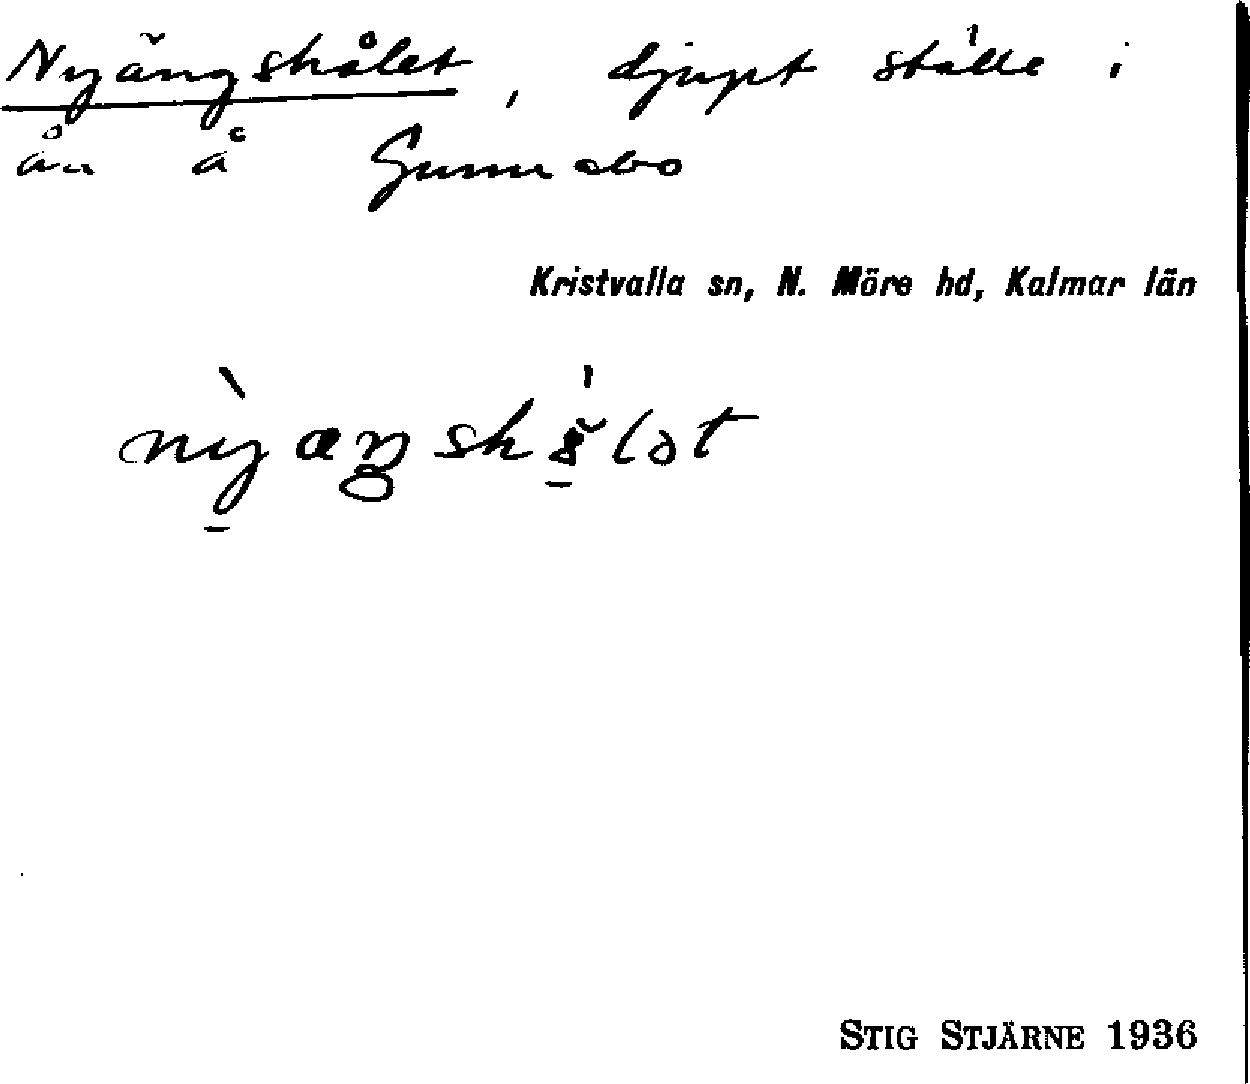 Nyängshålet, djupt ställe i
ån å Gunnabo
Kristvalla sn, N. Möre hd, Kalmar län
STIG STJÄRNE 1936